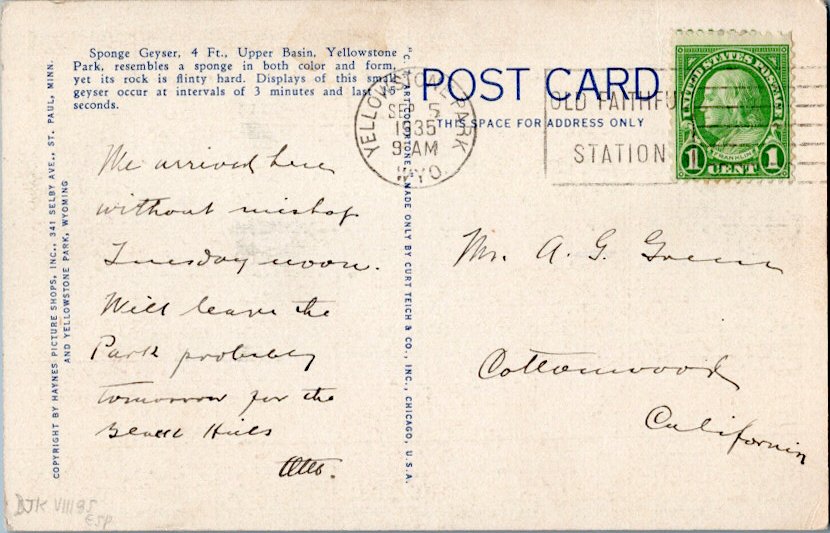 Sponge Geyser, 4 Ft., Upper Basin, Yellowstone
Park, resembles a sponge in both color and form,
yet its rock is flinty hard. Displays of this small
geyser occur at intervals of 3 minutes and last 45
seconds.
We arrived here
without mishap
Tuesday noon.
Will leave the
Park probably
tomorrow for the
Black Hills
Otto.
COPYRIGHT BY HAYNES PICTURE SHOPS, INC., 341 SELBY AVE., ST. PAUL, MINN.
AND YELLOWSTONE PARK, WYOMING
MADE ONLY BY CURT TEICH & CO., INC., CHICAGO, U.S.A.
POST CARD
THIS SPACE FOR ADDRESS ONLY
YELLOWSTONE PARK
SEP 5
1935
9 AM
WYO.
OLD FAITHFUL
STATION
UNITED STATES POSTAGE
FRANKLIN
1 CENT 1
Mr. A. G. Green
Cottonwood
California
DJK VIII 85